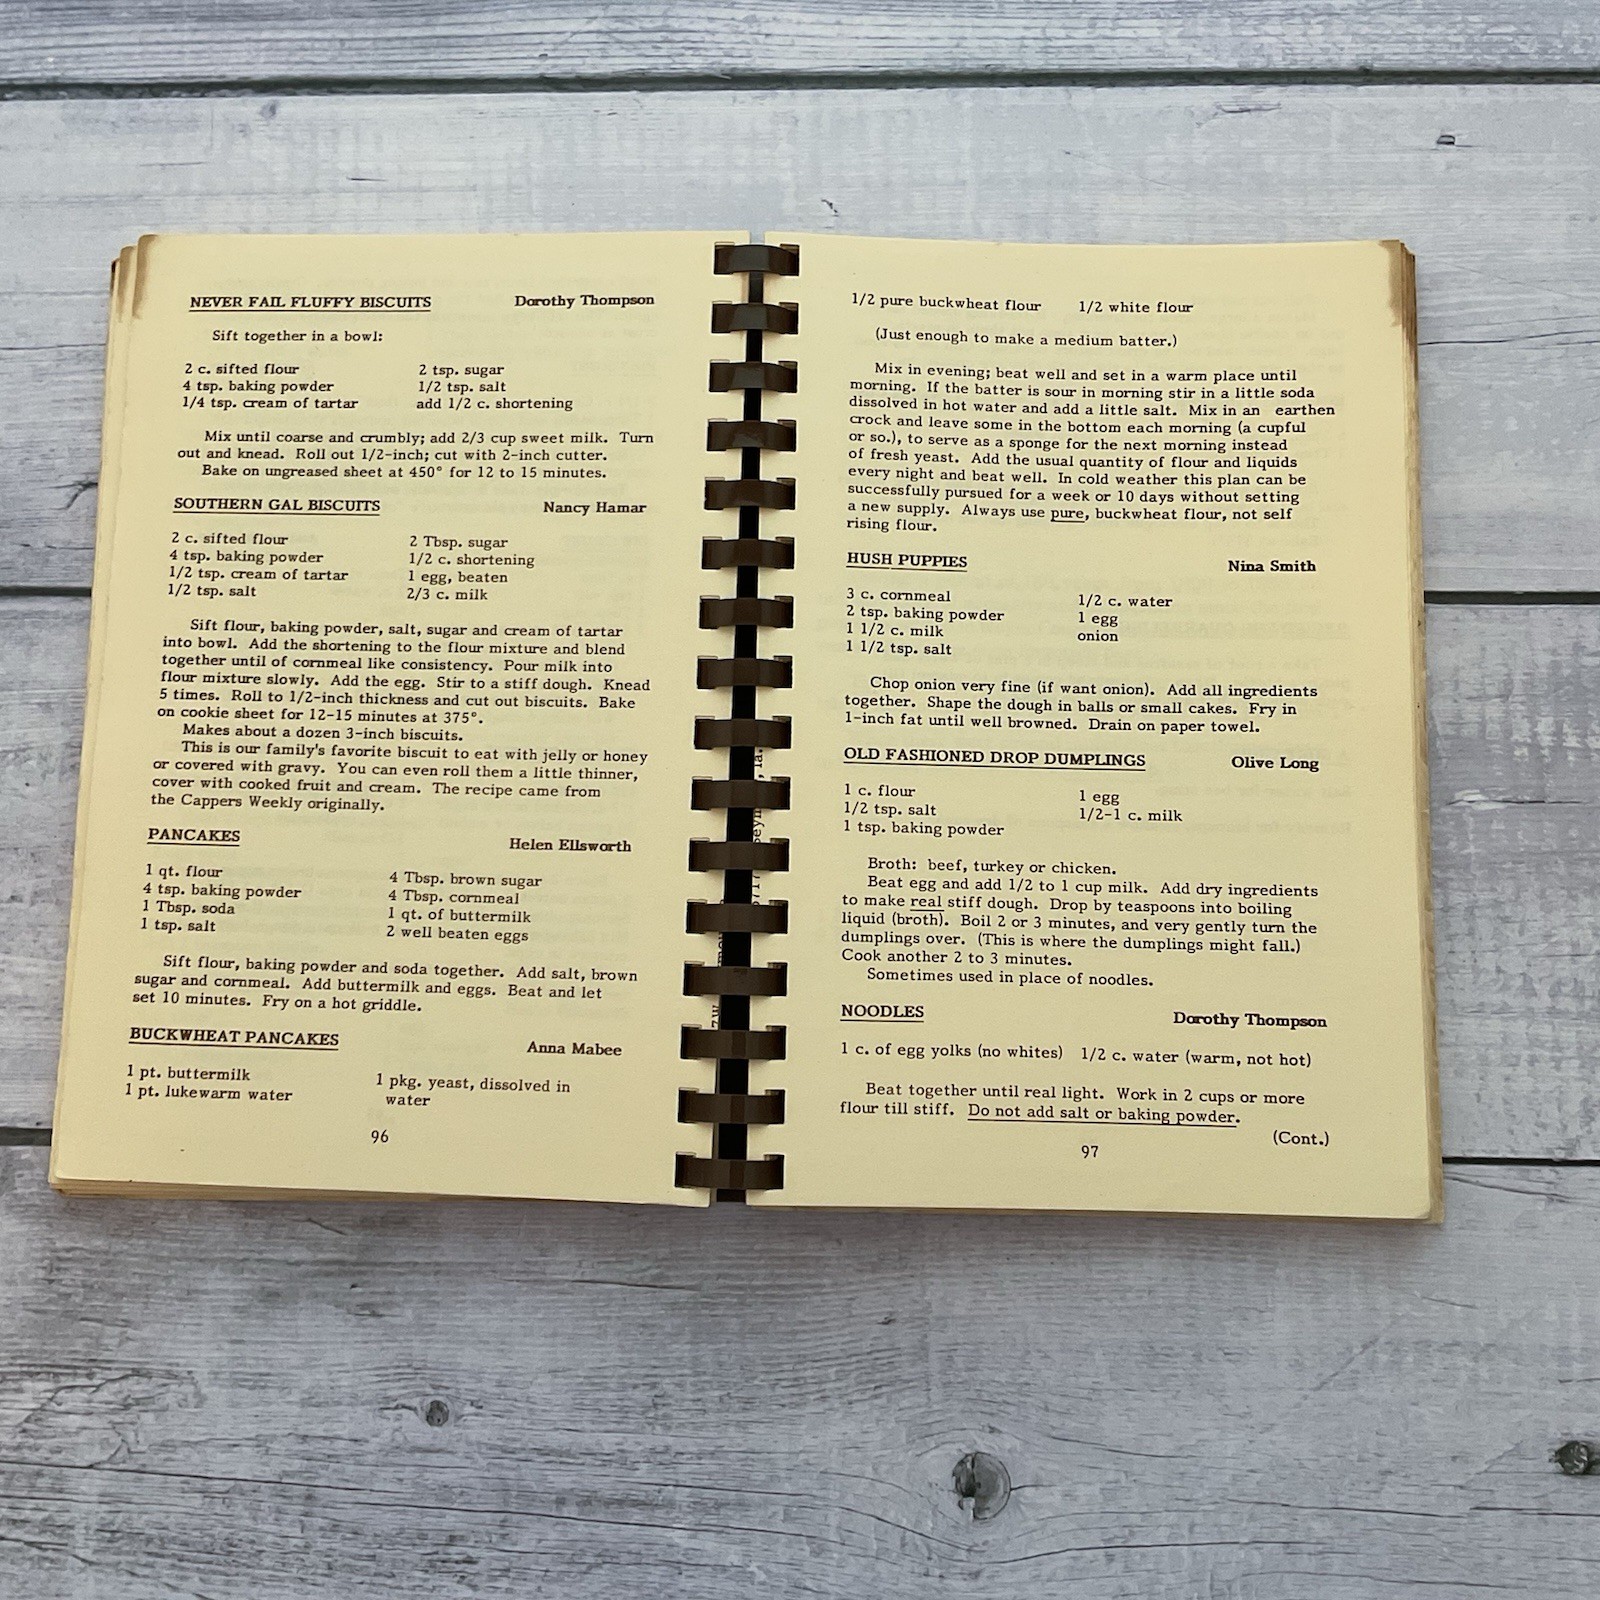 NEVER FAIL FLUFFY BISCUITS Dorothy Thompson
Sift together in a bowl:
2 c. sifted flour 2 tsp. sugar
4 tsp. baking powder 1/2 tsp. salt
1/4 tsp. cream of tartar add 1/2 c. shortening
Mix until coarse and crumbly; add 2/3 cup sweet milk. Turn
out and knead. Roll out 1/2-inch; cut with 2-inch cutter.
Bake on ungreased sheet at 450° for 12 to 15 minutes.
SOUTHERN GAL BISCUITS Nancy Hamar
2 c. sifted flour 2 Tbsp. sugar
4 tsp. baking powder 1/2 c. shortening
1/2 tsp. cream of tartar 1 egg, beaten
1/2 tsp. salt 2/3 c. milk
Sift flour, baking powder, salt, sugar and cream of tartar
into bowl. Add the shortening to the flour mixture and blend
together until of cornmeal like consistency. Pour milk into
flour mixture slowly. Add the egg. Stir to a stiff dough. Knead
5 times. Roll to 1/2-inch thickness and cut out biscuits. Bake
on cookie sheet for 12-15 minutes at 375°.
Makes about a dozen 3-inch biscuits.
This is our family's favorite biscuit to eat with jelly or honey
or covered with gravy. You can even roll them a little thinner,
cover with cooked fruit and cream. The recipe came from
the Cappers Weekly originally.
PANCAKES Helen Ellsworth
1 qt. flour 4 Tbsp. brown sugar
4 tsp. baking powder 4 Tbsp. cornmeal
1 Tbsp. soda 1 qt. of buttermilk
1 tsp. salt 2 well beaten eggs
Sift flour, baking powder and soda together. Add salt, brown
sugar and cornmeal. Add buttermilk and eggs. Beat and let
set 10 minutes. Fry on a hot griddle.
BUCKWHEAT PANCAKES Anna Mabee
1 pt. buttermilk 1 pkg. yeast, dissolved in
1 pt. lukewarm water water
96
1/2 pure buckwheat flour 1/2 white flour
(Just enough to make a medium batter.)
Mix in evening; beat well and set in a warm place until
morning. If the batter is sour in morning stir in a little soda
dissolved in hot water and add a little salt. Mix in an earthen
crock and leave some in the bottom each morning (a cupful
or so.), to serve as a sponge for the next morning instead
of fresh yeast. Add the usual quantity of flour and liquids
every night and beat well. In cold weather this plan can be
successfully pursued for a week or 10 days without setting
a new supply. Always use pure, buckwheat flour, not self
rising flour.
HUSH PUPPIES Nina Smith
3 c. cornmeal 1/2 c. water
2 tsp. baking powder 1 egg
1 1/2 c. milk onion
1 1/2 tsp. salt
Chop onion very fine (if want onion). Add all ingredients
together. Shape the dough in balls or small cakes. Fry in
1-inch fat until well browned. Drain on paper towel.
OLD FASHIONED DROP DUMPLINGS Olive Long
1 c. flour 1 egg
1/2 tsp. salt 1/2-1 c. milk
1 tsp. baking powder
Broth: beef, turkey or chicken.
Beat egg and add 1/2 to 1 cup milk. Add dry ingredients
to make real stiff dough. Drop by teaspoons into boiling
liquid (broth). Boil 2 or 3 minutes, and very gently turn the
dumplings over. (This is where the dumplings might fall.)
Cook another 2 to 3 minutes.
Sometimes used in place of noodles.
NOODLES Dorothy Thompson
1 c. of egg yolks (no whites) 1/2 c. water (warm, not hot)
Beat together until real light. Work in 2 cups or more
flour till stiff. Do not add salt or baking powder.
(Cont.)
97